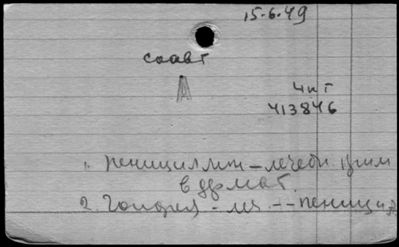 15.6.49
соавт
4 и г
413846
1. Пенициллин - лечебн. прим
в дрмат.
2. Гонорея - леч -- пеницил